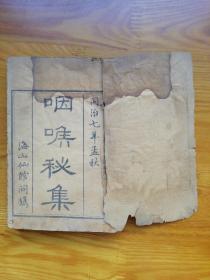 同治七年孟秋
咽喉秘集
海山仙館開鐫